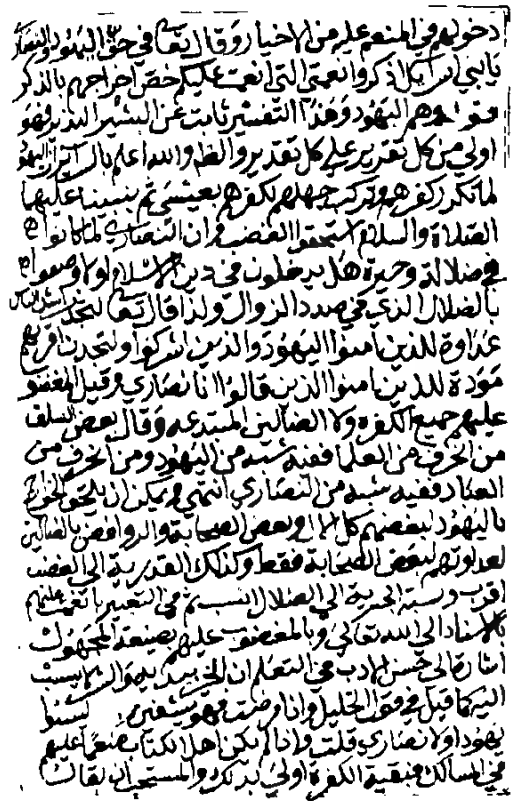 دخولهم في المنعم عليهم من الاخيار وقال تعالى في حق اليهود والنصارى
يا بني اسرائيل اذكروا نعمتي التي انعمت عليكم خص اخراجهم بالذكر
وهم اليهود وهذا التفسير ثابت عن البشير النذير فهو
اولى من كل تقدير على كل تقدير والله اعلم بالسرائر اليهود
لما تكرر كفرهم وتركب جهلهم لكفرهم بعيسى ثم بنبينا عليهما
الصلاة والسلام استحقوا الغضب ثم ان النصارى لما كانوا
في ضلالة وحيرة هل يدخلون في دين الاسلام او لا وصفوا
بالضلال الذي في صدد الزوال ولذا قال تعالى لتجدن اشد الناس
عداوة للذين امنوا اليهود والذين اشركوا ولتجدن اقربهم
مودة للذين امنوا الذين قالوا انا نصارى وقيل المغضوب
عليهم جميع الكفرة ولا الضالين المبتدعة وقال بعض السلف
من انحرف من العلما ففيه شبه من اليهود ومن انحرف من
العباد ففيه شبه من النصارى انتهى ويمكن ان يلحق الخوارج
باليهود لبغضهم وبعض الصحابة والروافض بالضالين
لعداوتهم لبعض الصحابة فقط وكذلك القدرية الى الغضب
اقرب ونسبة الجبرية الى الضلال انسب ثم في التعبير بانعمت عليهم
بالاسناد الى الله تعالى وبالمغضوب عليهم بصيغة المجهول
اشارة الى حسن الادب في التعلم ان الخير بيديه والشر لا ينسب
اليه كما قيل في قول الخليل واذا مرضت فهو يشفين ليسوا
يهودا ولا نصارى قلت واذا لم يكن اهل الكتاب منعما عليهم
في المسالك فبقية الكفرة اولى بذلك والمستحب ان يقال